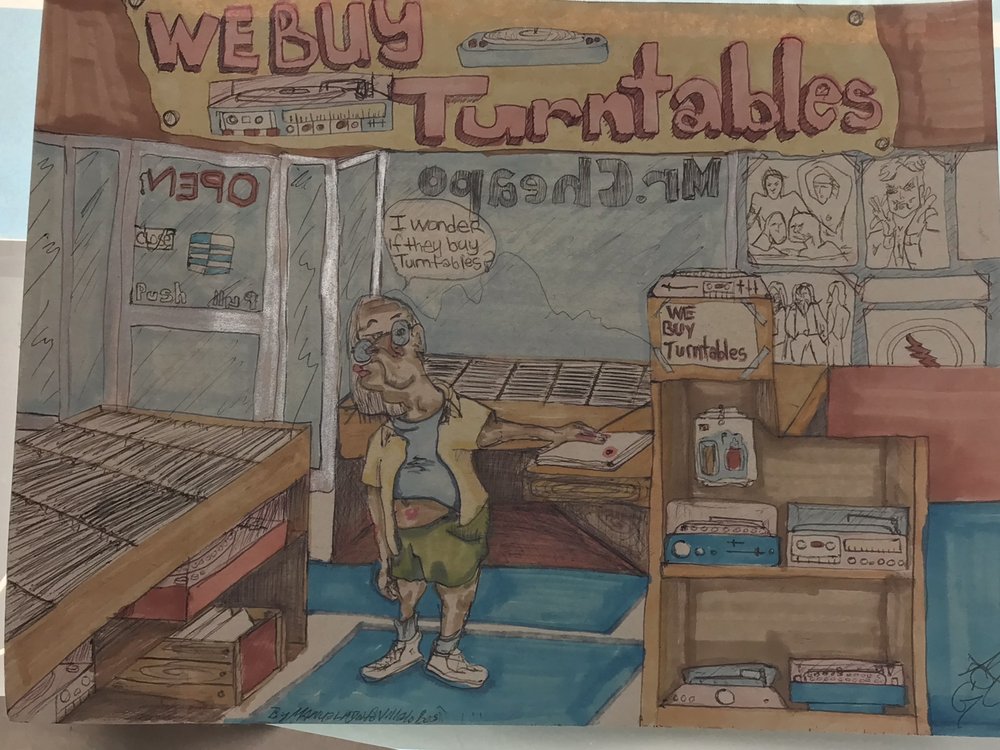 WE BUY
Turntables
Mr. Cheapo
OPEN
closed
Push
Pull
I wonder
if they buy
Turntables?
WE
BUY
Turntables
By